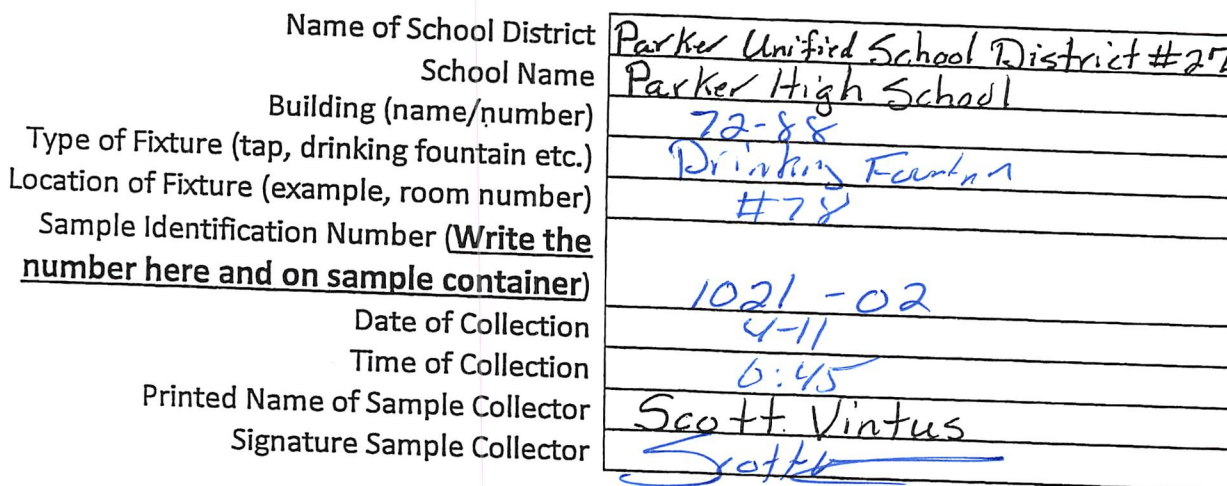 Name of School District Parker Unified School District #27
School Name Parker High School
Building (name/number) 72-88
Type of Fixture (tap, drinking fountain etc.) Drinking Fountain
Location of Fixture (example, room number) #78
Sample Identification Number (Write the
number here and on sample container) 1021-02
Date of Collection 4-11
Time of Collection 6:45
Printed Name of Sample Collector Scott Vintus
Signature Sample Collector Scott